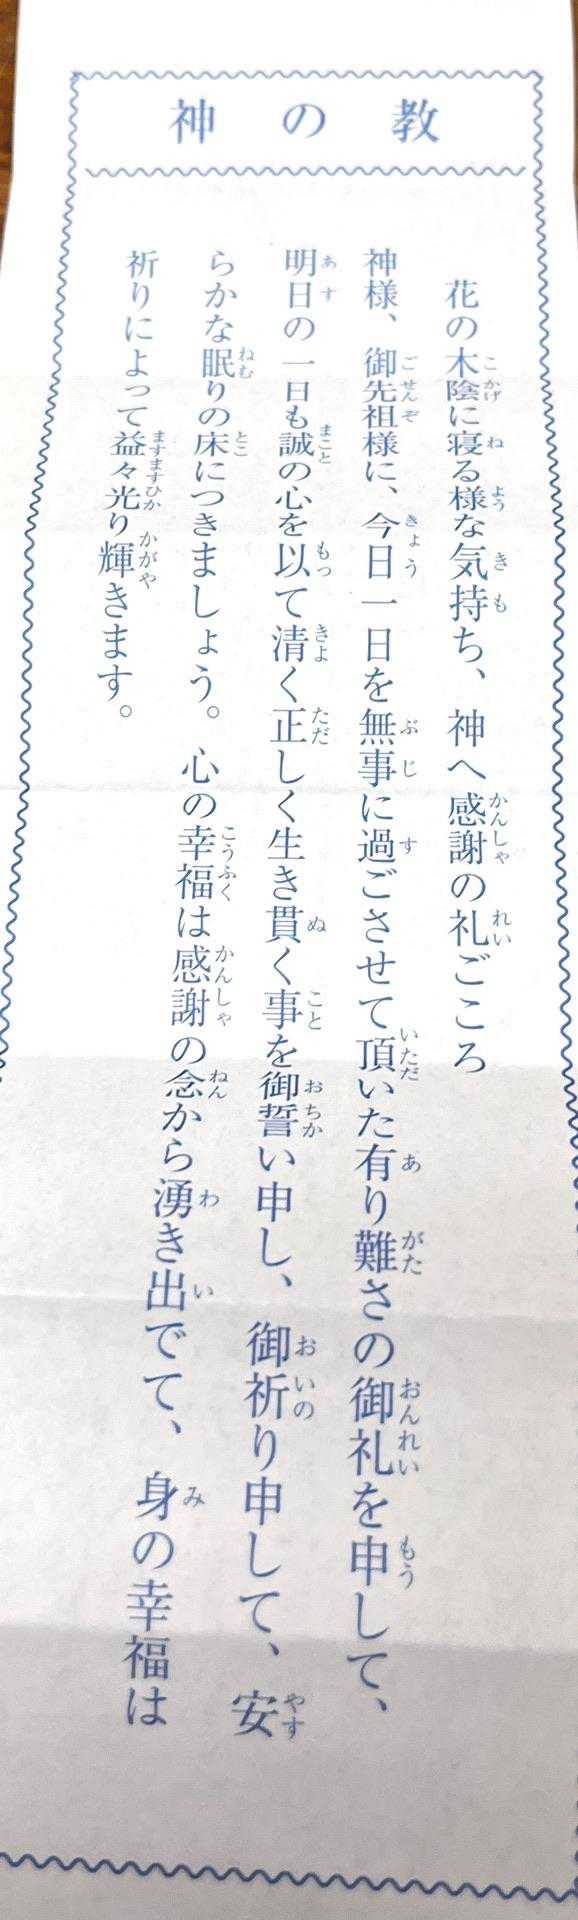 神の教
花の木陰に寝る様な気持ち、神へ感謝の礼ごころ
神様、御先祖様に、今日一日を無事に過ごさせて頂いた有り難さの御礼を申して、
明日の一日も誠の心を以て清く正しく生き貫く事を御誓い申し、御祈り申して、安
らかな眠りの床につきましょう。心の幸福は感謝の念から湧き出でて、身の幸福は
祈りによって益々光り輝きます。